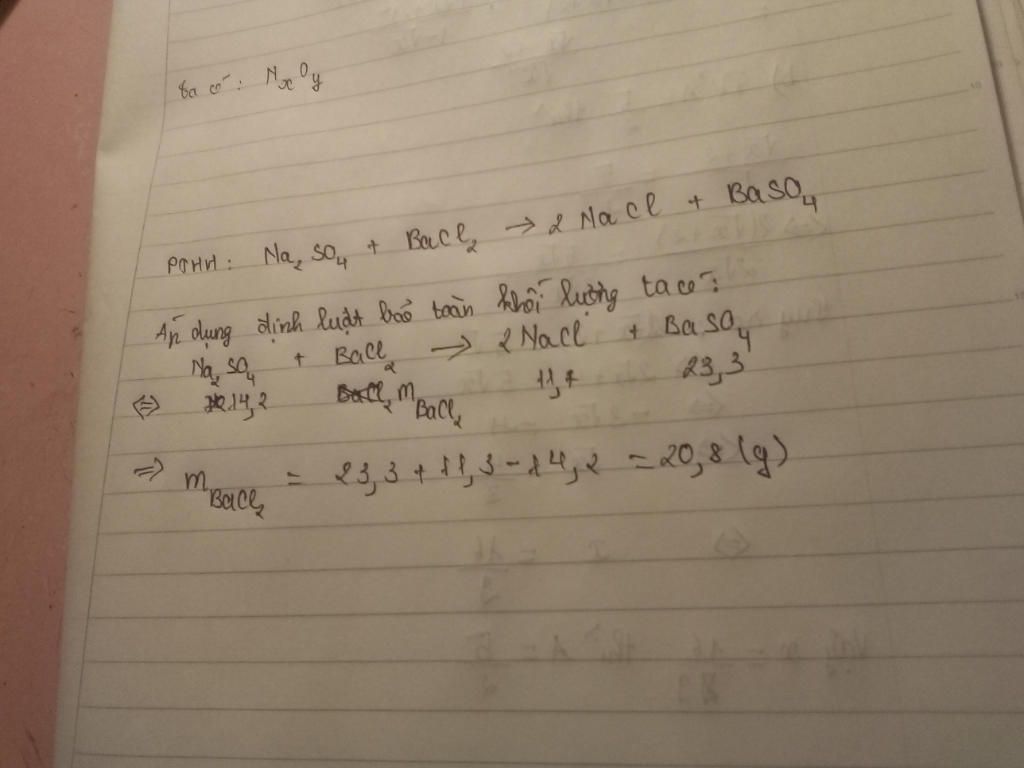 Ta có: NxOy
PTHH: Na2SO4 + BaCl2 → 2 NaCl + BaSO4
Áp dụng định luật bảo toàn khối lượng ta có:
Na2SO4 + BaCl2 → 2 NaCl + BaSO4
⇔ 14,2 mBaCl2 11,7 23,3
⇒ mBaCl2 = 23,3 + 11,3 - 14,2 = 20,8 (g)